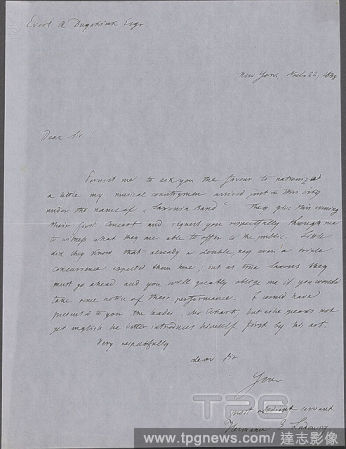 Evert A Duyckinck Esqr
New York,
Dear Sir
Permit me to ask you the favour to patronize
a little my musical countrymen arrived just in this city
under the name of "Saxonia Band". They give this evening
their first concert and request you respectfully through me
to witness what they are able to offer to the public. Little
did they know that already a double, nay even a triple
concurrence expected them here, but as true Saxons they
must go ahead and you will greatly oblige me if you would
take some notice of their performance. I would have
presented to you the leader, Mr but as he speaks not
yet english he better introduces himself first by his art.
Very respectfully
dear Sir
Your
most obedient servant
Hermann E. Ludewig
TPG
www.tpgnews.com / 達志影像